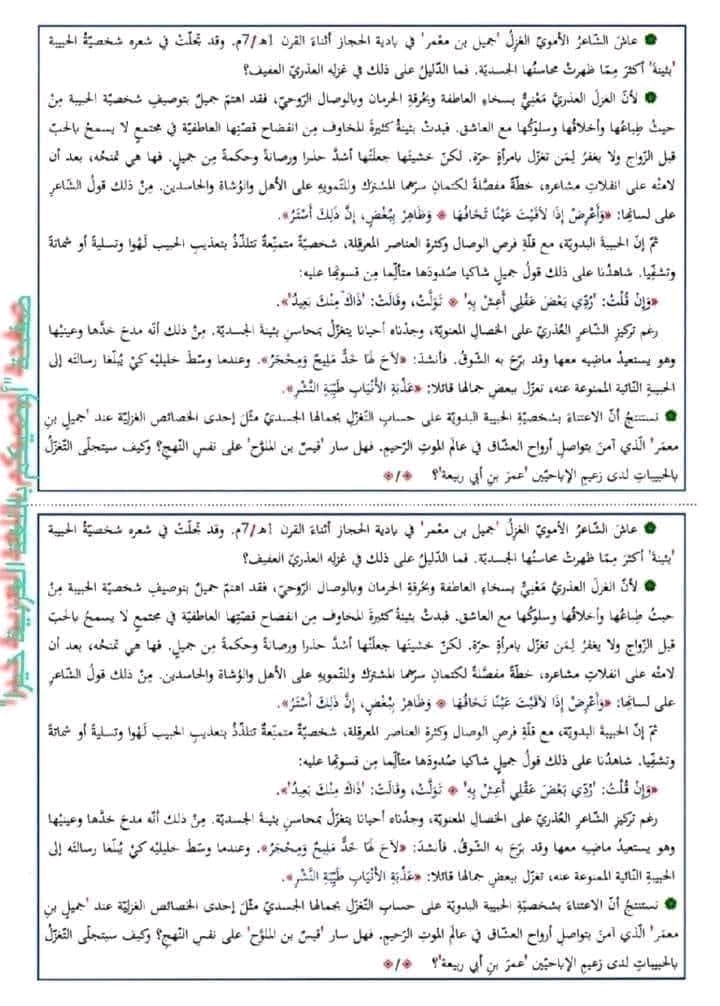 عاش الشّاعرُ الأمويّ الغزِلُ 'جميل بن معْمر' في بادية الحجاز أثناءَ القرن 1هـ/7م. وقد تجلّتْ في شعره شخصيّةُ الحبيبة
'بثينة' أكثرَ مِمّا ظهرتْ محاسنُها الجسديّة. فما الدّليلُ على ذلك في غزله العذريّ العفيف؟
لأنّ الغزلَ العذريَّ مَعْنِيٌّ بسخاءِ العاطفة وبحُرقةِ الحرمان وبالوصال الرّوحيّ، فقد اهتمّ جميلٌ بتوصيفِ شخصيّة الحبيبة مِنْ
حيثُ طِباعُها وأخلاقُها وسلوكُها مع العاشق. فبدتْ بثينةُ كثيرةَ المخاوف مِن انفضاح قصّتِها العاطفيّة في مجتمعٍ لا يسمحُ بالحبّ
قبل الزّواج ولا يغفرُ لِمَن تغزّل بامرأةٍ حرّة. لكنّ خشيتَها جعلتْها أشدَّ حذرا ورصانةً وحكمةً مِن جميلٍ. فها هي تمنحُه، بعد أن
لامتْه على انفلاتِ مشاعره، خطّةً مفصّلةً لكتمانِ سرّهِما المشترَك وللتّمويهِ على الأهل والوُشاة والحاسدين. مِنْ ذلك قولُ الشّاعرِ
على لسانِها: «وَأَعْرِضْ إِذَا لاَقَيْتَ عَيْنًا تَخَافُهَا ۞ وَظَاهِرْ بِبُغْضٍ، إِنَّ ذَلِكَ أَسْتَرُ».
ثمّ إنّ الحبيبةَ البدويّة، مع قلّةِ فرصِ الوصال وكثرةِ العناصر المعرقِلة، شخصيّةٌ متمنّعةٌ تتلذّذُ بتعذيبِ الحبيب لَهْوا وتسليةً أو شماتةً
وتشفّيا. شاهدُنا على ذلك قولُ جميلٍ شاكيا صُدودَها متألّما مِن قسوتِها عليه:
«وَإِنْ قُلْتُ: 'رُدِّي بَعْضَ عَقْلِي أَعِشْ بِهِ' ۞ تَوَلَّتْ، وقَالَتْ: 'ذَاكَ مِنْكَ بَعِيدُ'».
رغم تركيزِ الشّاعرِ العُذريّ على الخصالِ المعنويّة، وجدْناه أحيانا يتغزّلُ بمحاسنِ بثينةَ الجسديّة. مِنْ ذلك أنّه مدحَ خدَّها وعينيْها
وهو يستعيدُ ماضِيه معها وقد برّحَ به الشّوقُ. فأنشدَ: «لاَحَ لَهَا خَدٌّ مَلِيحٌ وَمِحْجَرُ». وعندما وسّطَ خليليْه كيْ يُبلّغا رسالتَه إلى
الحبيبةِ النّائية الممنوعة عنه، تغزّلَ ببعضِ جمالِها قائلا: «عَذْبَةِ الأَنْيَابِ طَيِّبَةِ النَّشْرِ».
نستنتجُ أنّ الاعتناءَ بشخصيّةِ الحبيبة البدويّة على حسابِ التّغزّلِ بجمالها الجسديّ مثّلَ إحدى الخصائص الغزليّة عند 'جميلِ بنِ
معمر' الّذي آمنَ بتواصلِ أرواحِ العشّاق في عالمِ الموتِ الرّحيم. فهل سار 'قيسُ بن الملوّح' على نفس النّهجِ؟ وكيف سيتجلّى التّغزّلُ
بالحبيباتِ لدى زعيمِ الإباحيّين 'عمرَ بنِ أبي ربيعة'؟ ۞/۞
عاش الشّاعرُ الأمويّ الغزِلُ 'جميل بن معْمر' في بادية الحجاز أثناءَ القرن 1هـ/7م. وقد تجلّتْ في شعره شخصيّةُ الحبيبة
'بثينة' أكثرَ مِمّا ظهرتْ محاسنُها الجسديّة. فما الدّليلُ على ذلك في غزله العذريّ العفيف؟
لأنّ الغزلَ العذريَّ مَعْنِيٌّ بسخاءِ العاطفة وبحُرقةِ الحرمان وبالوصال الرّوحيّ، فقد اهتمّ جميلٌ بتوصيفِ شخصيّة الحبيبة مِنْ
حيثُ طِباعُها وأخلاقُها وسلوكُها مع العاشق. فبدتْ بثينةُ كثيرةَ المخاوف مِن انفضاح قصّتِها العاطفيّة في مجتمعٍ لا يسمحُ بالحبّ
قبل الزّواج ولا يغفرُ لِمَن تغزّل بامرأةٍ حرّة. لكنّ خشيتَها جعلتْها أشدَّ حذرا ورصانةً وحكمةً مِن جميلٍ. فها هي تمنحُه، بعد أن
لامتْه على انفلاتِ مشاعره، خطّةً مفصّلةً لكتمانِ سرّهِما المشترَك وللتّمويهِ على الأهل والوُشاة والحاسدين. مِنْ ذلك قولُ الشّاعرِ
على لسانِها: «وَأَعْرِضْ إِذَا لاَقَيْتَ عَيْنًا تَخَافُهَا ۞ وَظَاهِرْ بِبُغْضٍ، إِنَّ ذَلِكَ أَسْتَرُ».
ثمّ إنّ الحبيبةَ البدويّة، مع قلّةِ فرصِ الوصال وكثرةِ العناصر المعرقِلة، شخصيّةٌ متمنّعةٌ تتلذّذُ بتعذيبِ الحبيب لَهْوا وتسليةً أو شماتةً
وتشفّيا. شاهدُنا على ذلك قولُ جميلٍ شاكيا صُدودَها متألّما مِن قسوتِها عليه:
«وَإِنْ قُلْتُ: 'رُدِّي بَعْضَ عَقْلِي أَعِشْ بِهِ' ۞ تَوَلَّتْ، وقَالَتْ: 'ذَاكَ مِنْكَ بَعِيدُ'».
رغم تركيزِ الشّاعرِ العُذريّ على الخصالِ المعنويّة، وجدْناه أحيانا يتغزّلُ بمحاسنِ بثينةَ الجسديّة. مِنْ ذلك أنّه مدحَ خدَّها وعينيْها
وهو يستعيدُ ماضِيه معها وقد برّحَ به الشّوقُ. فأنشدَ: «لاَحَ لَهَا خَدٌّ مَلِيحٌ وَمِحْجَرُ». وعندما وسّطَ خليليْه كيْ يُبلّغا رسالتَه إلى
الحبيبةِ النّائية الممنوعة عنه، تغزّلَ ببعضِ جمالِها قائلا: «عَذْبَةِ الأَنْيَابِ طَيِّبَةِ النَّشْرِ».
نستنتجُ أنّ الاعتناءَ بشخصيّةِ الحبيبة البدويّة على حسابِ التّغزّلِ بجمالها الجسديّ مثّلَ إحدى الخصائص الغزليّة عند 'جميلِ بنِ
معمر' الّذي آمنَ بتواصلِ أرواحِ العشّاق في عالمِ الموتِ الرّحيم. فهل سار 'قيسُ بن الملوّح' على نفس النّهجِ؟ وكيف سيتجلّى التّغزّلُ
بالحبيباتِ لدى زعيمِ الإباحيّين 'عمرَ بنِ أبي ربيعة'؟ ۞/۞
صفحة "أوصيكم باللغة العربية خيرا"